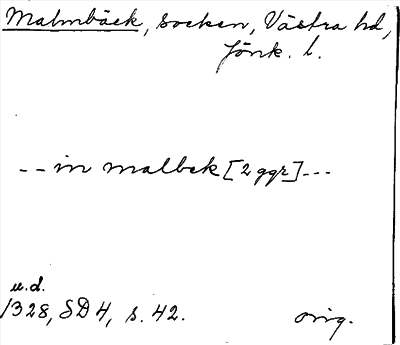 Malmbäck, socken, Västra hd,
Jönk. l.
-- in malbek [2 ggr] ---
u.d.
1328, SD 4, s. 42.
orig.